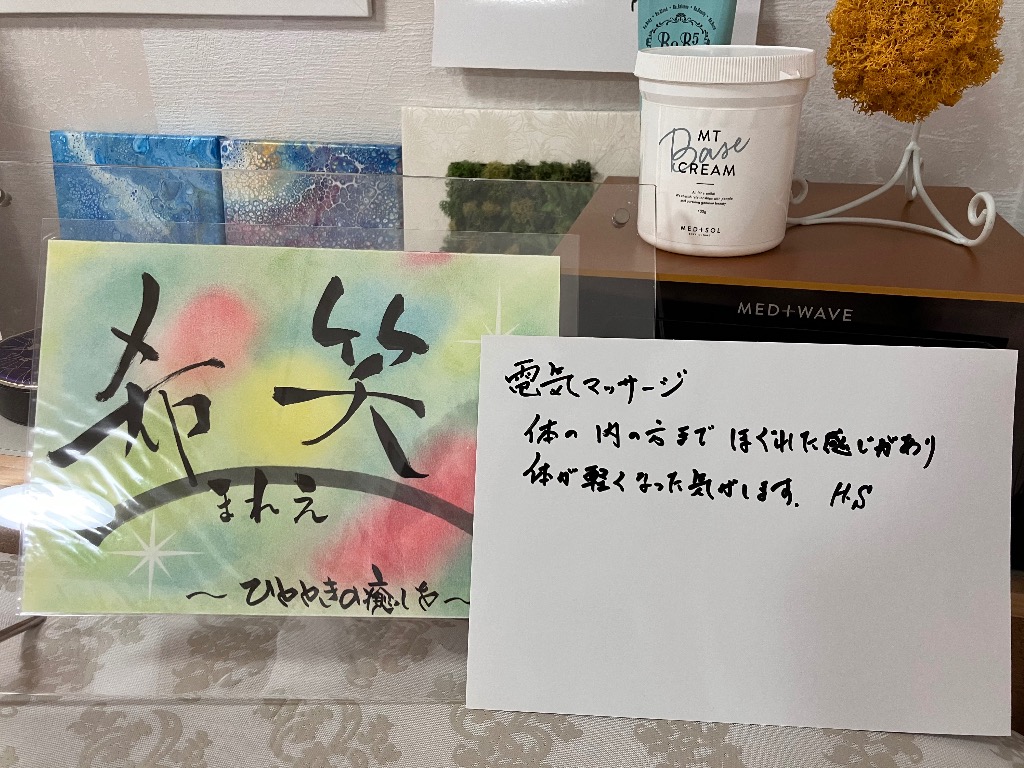 MT
Base
CREAM
MED+SOL
MED+WAVE
希笑
まれえ
～ひとときの癒しを～
電気マッサージ
体の内の方までほぐれた感じがあり
体が軽くなった気がします。 H.S